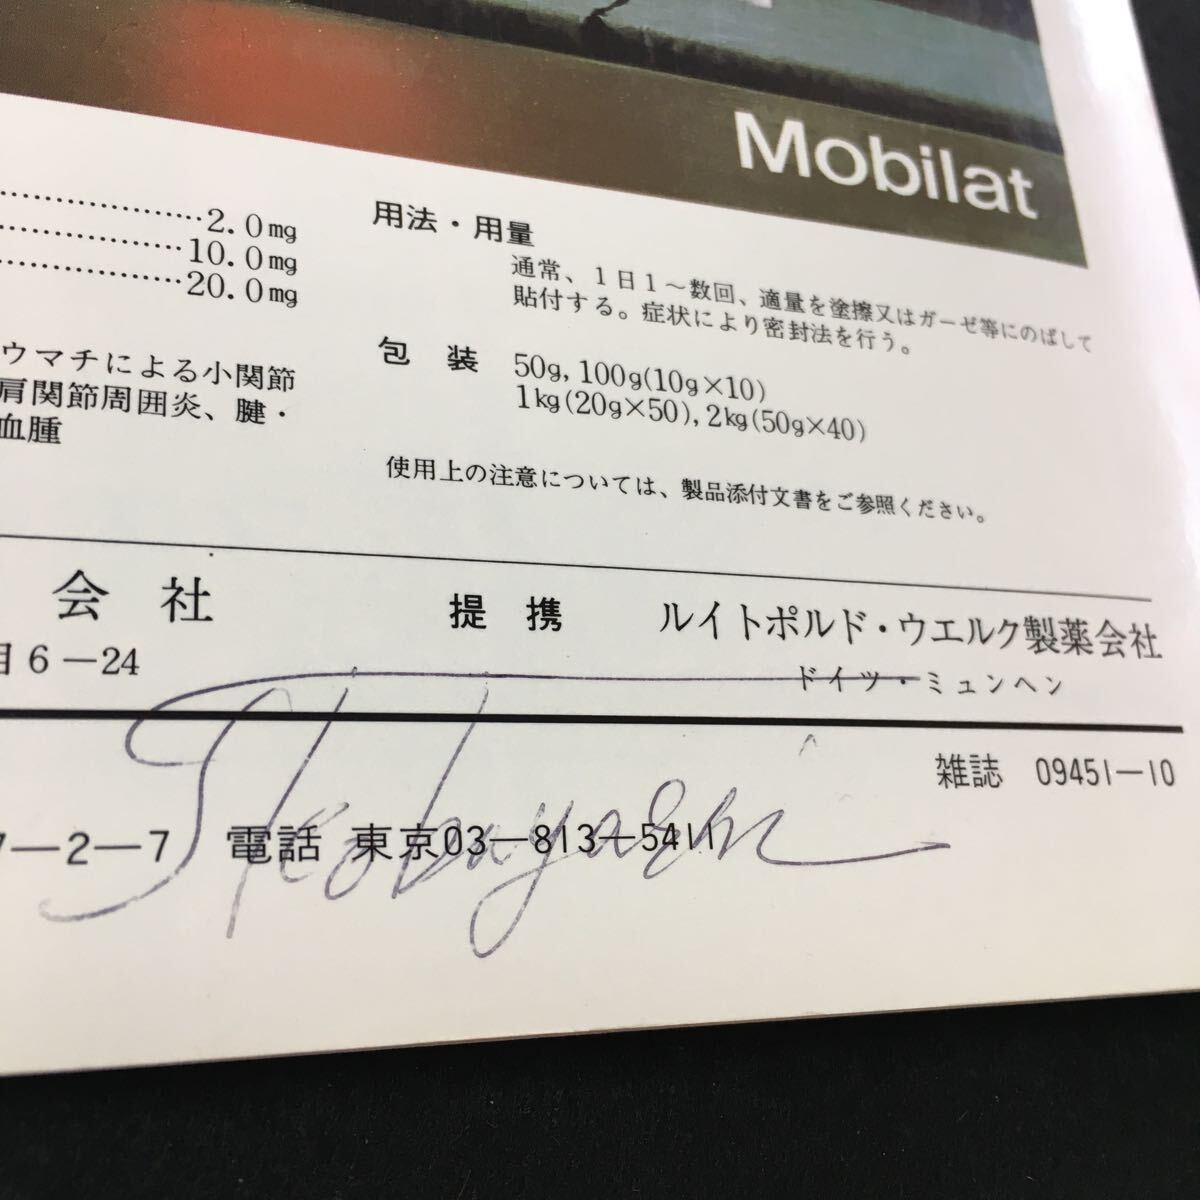 Mobilat
2.0mg
10.0mg
20.0mg
ウマチによる小関節
肩関節周囲炎、腱・
血腫
用法・用量
通常、1日1〜数回、適量を塗擦又はガーゼ等にのばして
貼付する。症状により密封法を行う。
包装 50g, 100g(10g×10)
1kg(20g×50), 2kg(50g×40)
使用上の注意については、製品添付文書をご参照ください。
会社 提携 ルイトポルド・ウエルク製薬会社
目6−24 ドイツ・ミュンヘン
雑誌 09451−10
7−2−7 電話 東京03−813−5411